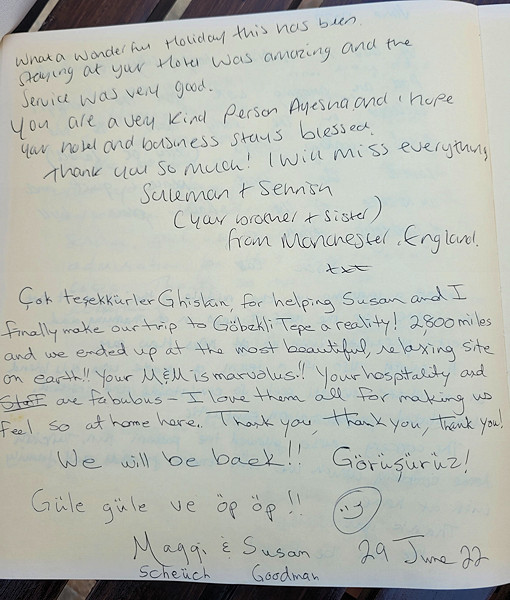 What a wonderful Holiday this has been.
Staying at your Hotel was amazing and the
service was very good.
You are a very kind Person Ayesha and i hope
your hotel and business stays blessed.
Thank you so much! I will miss everything
Suleman +
(your brother + sister)
from Manchester, England.
xxx
Çok teşekkürler Ghiskin, for helping Susan and I
finally make our trip to Göbekli Tepe a reality! 2,800 miles
and we ended up at the most beautiful, relaxing site
on earth!! Your M&M is marvolus!! Your hosptality and
Staff are fabulous – I love them all for making us
feel so at home here. Thank you, thank you, thank you!
We will be back!! Görüşürüz!
Güle güle ve öp öp!!
Maggi & Susan 29 June 22
Scheüch Goodman